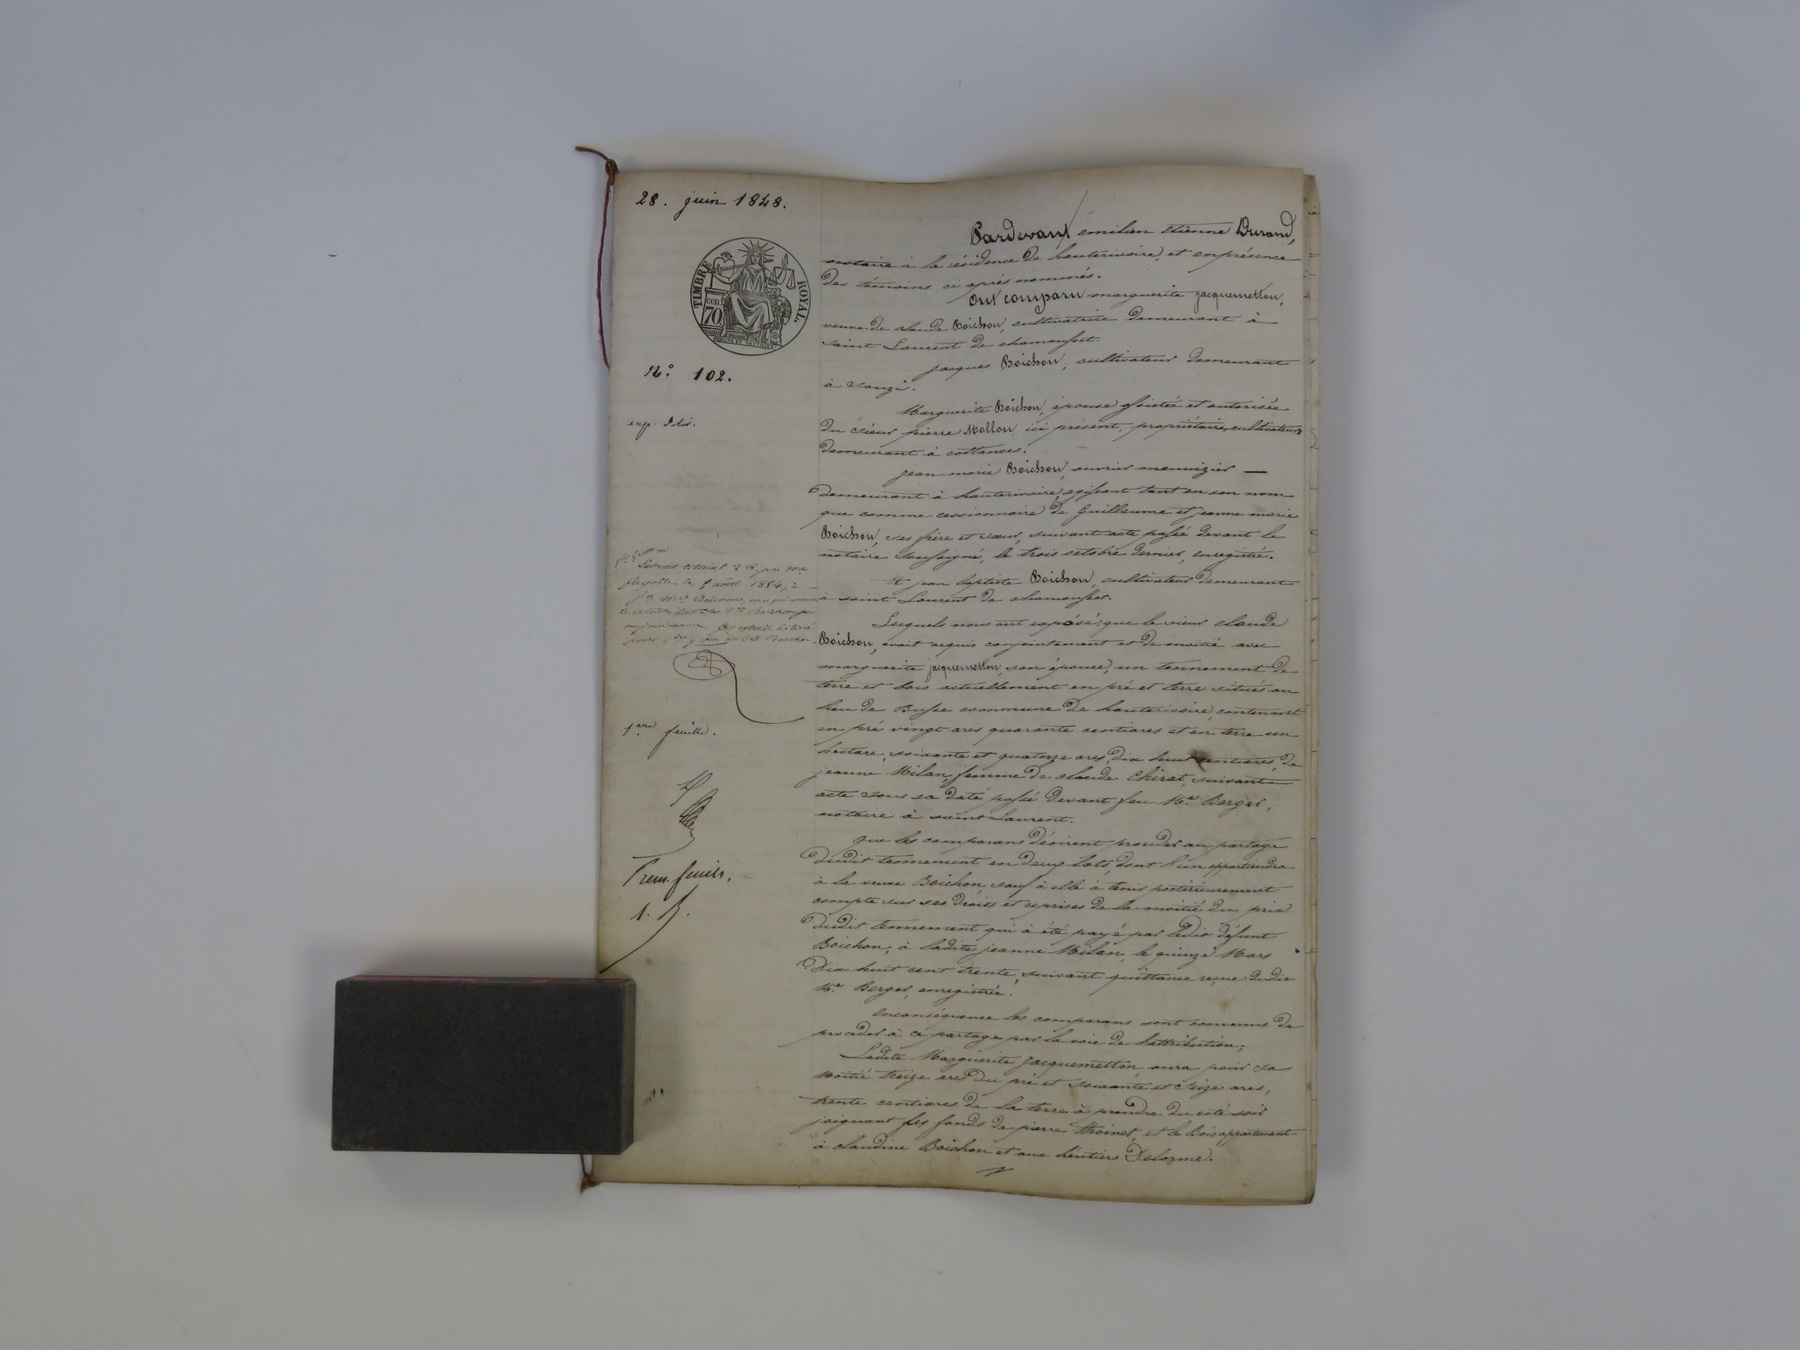 28. juin 1848.
TIMBRE ROYAL.
cen
70
N.° 102.
exp. deliv.
1ere feuille.
Prem. feuille.
Pardevant emilien etienne Durand,
notaire à la résidence de hauterivoire, et en présence
des témoins ci après nommés.
Ont comparu marguerite jacquemetton,
veuve de claude Boichon, cultivatrice demeurant à
saint Laurent de chamousset.
jacques Boichon, cultivateur demeurant
à
Marguerite Boichon, épouse assistée et autorisée
du sieur pierre Mollon ici présent, propriétaire, cultivateur
demeurant à cottances.
jean marie Boichon, ouvrier menuizier —
demeurant à hauterivoire, agissant tant en son nom
que comme cessionnaire de Guillaume et jeanne marie
Boichon, ses frère et sœur, suivant acte passé devant le
notaire soussigné, le trois octobre dernier, enregistré.
Et jean baptiste Boichon, cultivateur demeurant
à saint Laurent de chamousset.
Lesquels nous ont exposé: que le sieur claude
Boichon, avait acquis conjointement et de moitié avec
marguerite jacquemetton, son épouse, un tennement de
terre et bois actuellement en pré et terre situés au
lieu de commune de hauterivoire, contenant
en pré vingt ares quarante centiares et en terre un
hectare, soixante et quatorze ares, dix huit centiares, de
jeanne Milan, femme de claude Chirat, suivant
acte sous sa date passé devant feu Me Berger,
notaire à saint Laurent.
que les comparans désirent procéder au partage
dudit tennement en deux lots, dont l'un appartiendra
à la veuve Boichon, sauf à elle à tenir postérieurement
compte sur ses droits et reprises de la moitié du prix
dudit tennement qui à été payé par ledit défunt
Boichon, à ladite jeanne Milan, le quinze Mars
dix huit cent trente, suivant quittance reçue dudit
Me Berger, enregistrée.
Enconséquence les comparans sont convenus de
procéder à ce partage par la voie de l'attribution;
Ladite Marguerite Jacquemetton, aura pour sa
Moitié treize ares du pré et soixante et seize ares,
trente centiares de la terre à prendre du coté soir
joignant les fonds de pierre Thoinet, et le bois appartenant
à claudine Boichon et aux héritiers Delorme.